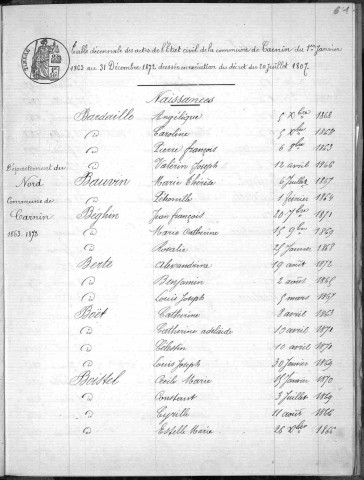 61
Table décennale des actes de l'Etat civil de la commune de Carnin du 1er Janvier
1863 au 31 Décembre 1872, dressée en exécution du décret du 20 Juillet 1807.
Naissances
Département du
Nord
Commune de
Carnin
1863. 1872
Bardaille Angélique 5 Xbre 1868
d° Caroline 5 Xbre
d° Pierre François 6 1863
d° Valérin Joseph 12 avril 1866
Bauvin Marie Thérèse 6 Juillet
d° Pétronille 1 février 1864
Béghin Jean François 20 7bre 1871
d° Marie Catherine 15 9bre 1869
d° Rosalie 25 Janvier 1868
Berte Alexandrine 19 août 1872
d° Benjamin 2 août
d° Louis Joseph 5 mars
Boët Catherine 8 avril 1863
d° Catherine adélaïde 10 avril 1870
d° Célestin 10 avril 1870
d° Louis Joseph 30 Janvier 1869
Boistel Cécile Marie 15 Janvier 1870
d° Constant 3 Juillet 1869
d° Cyrille 11 août 1866
d° Estelle Marie 26 Xbre 1865